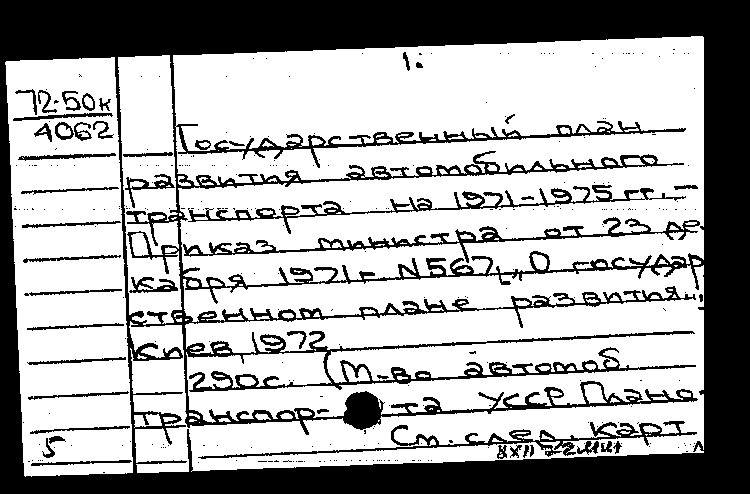 1.
72-50к
4062
Государственный план
развития автомобильного
транспорта на 1971-1975 гг. –
Приказ министра от 23 де-
кабря 1971г. N567 „О государ
ственном плане развития..."
Киев, 1972.
290с. (М-во автомоб.
транспор- та УССР. Плано-
См. след. карт
5